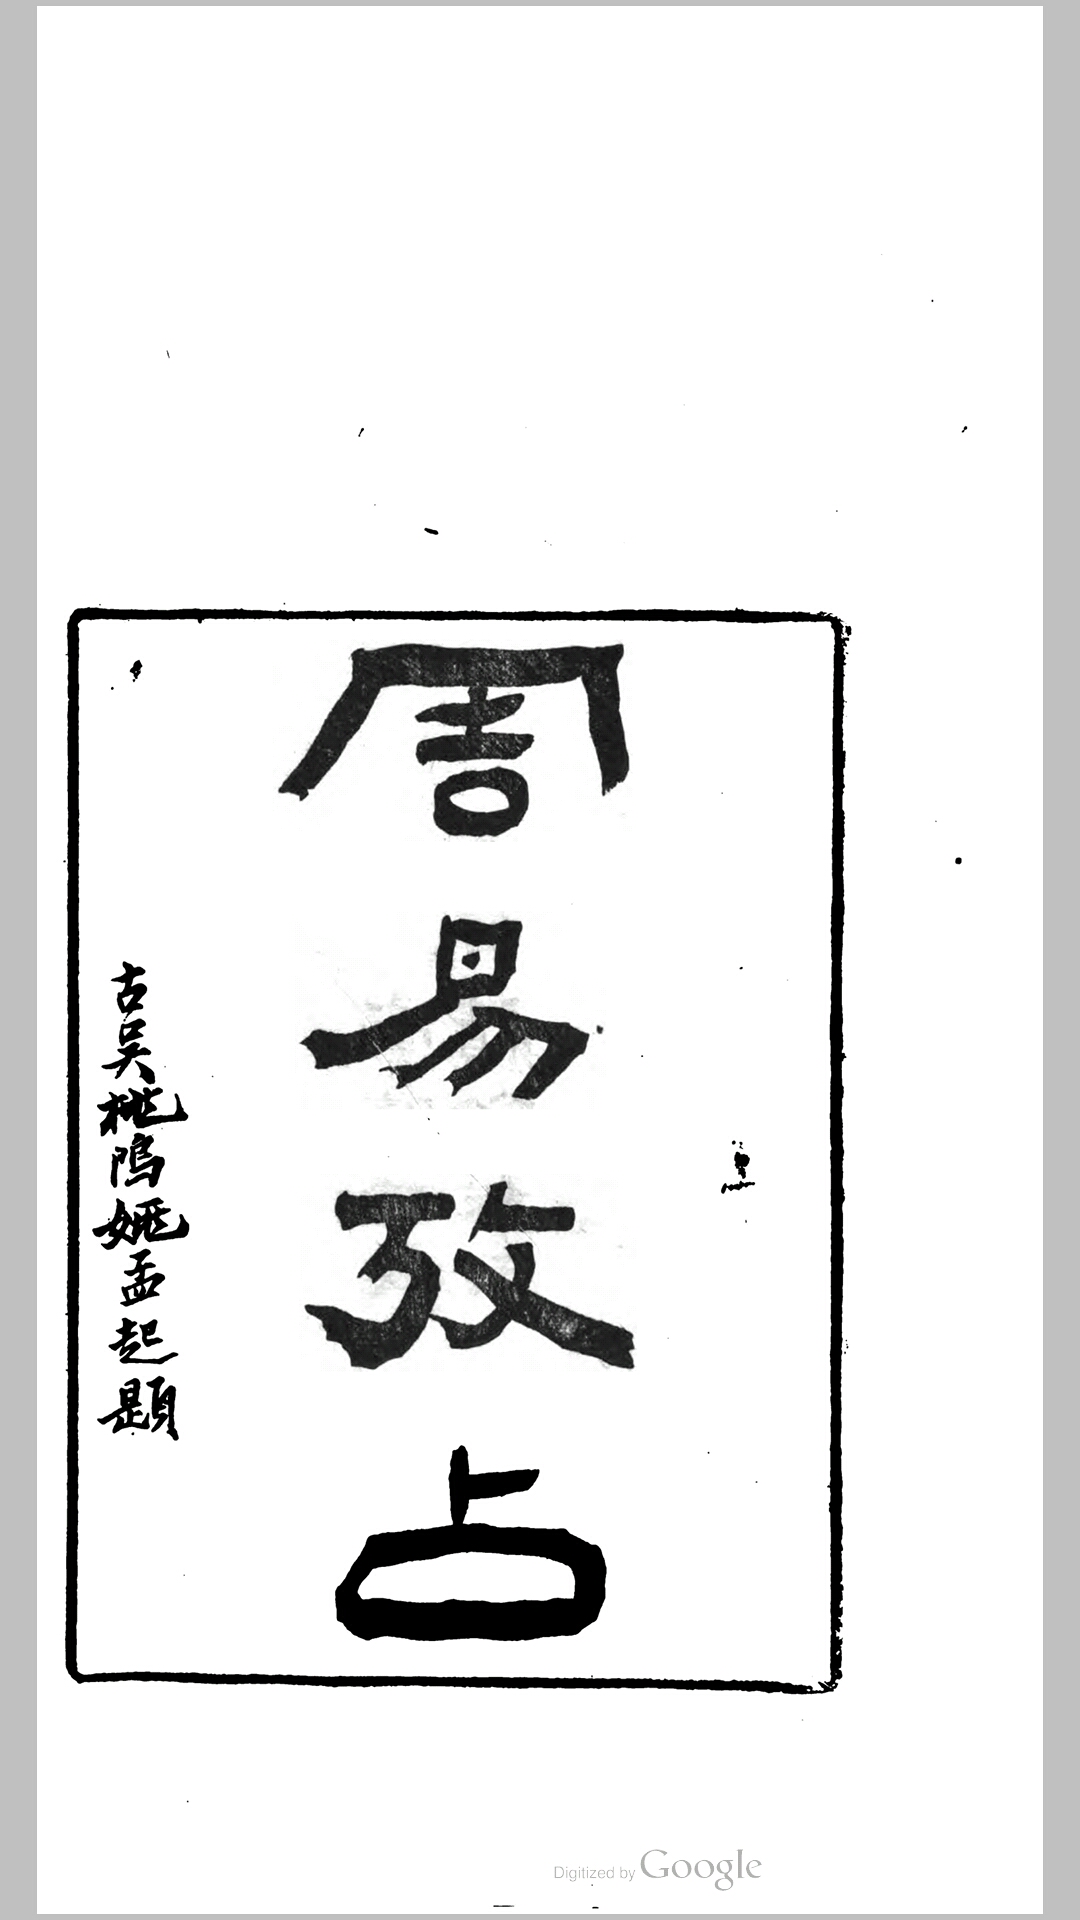 周易攷占
古吴桃隖姚孟起題
Digitized by Google